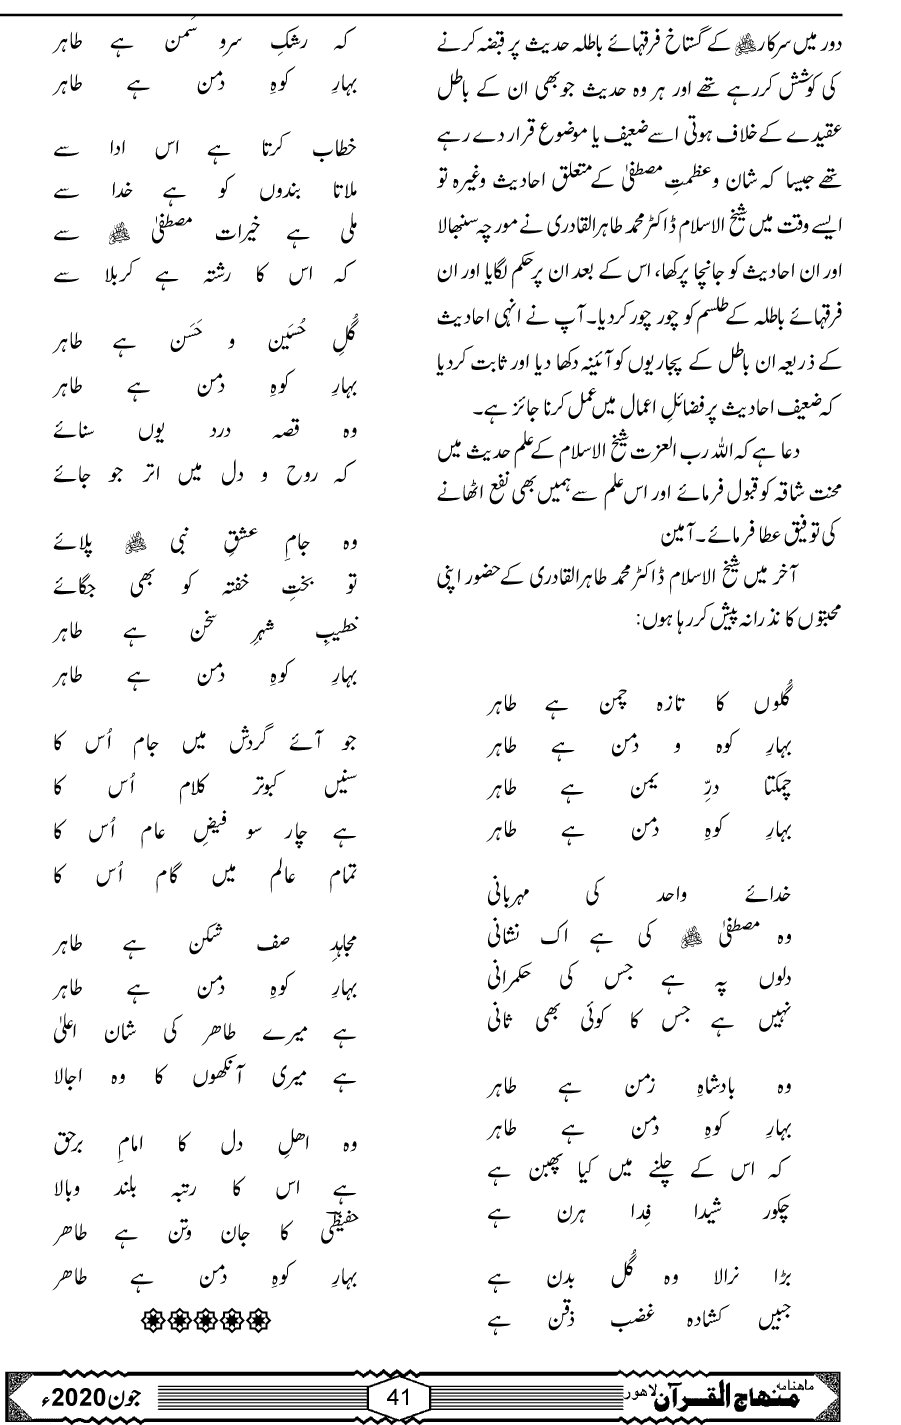 دور میں سرکار ﷺ کے گستاخ فرقہائے باطلہ حدیث پر قبضہ کرنے
کی کوشش کررہے تھے اور ہر وہ حدیث جو بھی ان کے باطل
عقیدے کے خلاف ہوتی اسے ضعیف یا موضوع قرار دے رہے
تھے جیسا کہ شان و عظمتِ مصطفیٰ کے متعلق احادیث وغیرہ تو
ایسے وقت میں شیخ الاسلام ڈاکٹر محمد طاہرالقادری نے مورچہ سنبھالا
اور ان احادیث کو جانچا پرکھا، اس کے بعد ان پر حکم لگایا اور ان
فرقہائے باطلہ کے طلسم کو چور چور کردیا۔ آپ نے انہی احادیث
کے ذریعہ ان باطل کے پجاریوں کو آئینہ دکھا دیا اور ثابت کردیا
کہ ضعیف احادیث پر فضائلِ اعمال میں عمل کرنا جائز ہے۔
دعا ہے کہ اللہ رب العزت شیخ الاسلام کے علم حدیث میں
محنت شاقہ کو قبول فرمائے اور اس علم سے ہمیں بھی نفع اٹھانے
کی توفیق عطا فرمائے۔ آمین
آخر میں شیخ الاسلام ڈاکٹر محمد طاہرالقادری کے حضور اپنی
محبتوں کا نذرانہ پیش کررہا ہوں:
گُلوں کا تازہ چمن ہے طاہر
بہارِ کوہ و دمن ہے طاہر
چمکتا درِّ یمن ہے طاہر
بہارِ کوہِ دمن ہے طاہر
خدائے واحد کی مہربانی
وہ مصطفیٰ ﷺ کی ہے اک نشانی
دلوں پہ ہے جس کی حکمرانی
نہیں ہے جس کا کوئی بھی ثانی
وہ بادشاہِ زمن ہے طاہر
بہارِ کوہِ دمن ہے طاہر
کہ اس کے چلنے میں کیا پھبن ہے
چکور شیدا فِدا ہرن ہے
بڑا نرالا وہ گُل بدن ہے
جبیں کشادہ غضب ذقن ہے
کہ رشکِ سرو سَمن ہے طاہر
بہارِ کوہِ دمن ہے طاہر
خطاب کرتا ہے اس ادا سے
ملاتا بندوں کو ہے خدا سے
ملی ہے خیرات مصطفیٰ ﷺ سے
کہ اس کا رشتہ ہے کربلا سے
گُلِ حُسَین و حَسَن ہے طاہر
بہارِ کوہِ دمن ہے طاہر
وہ قصہ درد یوں سنائے
کہ روح و دل میں اتر جو جائے
وہ جامِ عشقِ نبی ﷺ پلائے
تو بختِ خفتہ کو بھی جگائے
خطیبِ شہرِ سخن ہے طاہر
بہارِ کوہِ دمن ہے طاہر
جو آئے گردش میں جام اُس کا
سنیں کبوتر کلام اُس کا
ہے چار سو فیضِ عام اُس کا
تمام عالم میں گام اُس کا
مجاہدِ صف شکن ہے طاہر
بہارِ کوہِ دمن ہے طاہر
ہے میرے طاھر کی شان اعلیٰ
ہے میری آنکھوں کا وہ اجالا
وہ اھلِ دل کا امامِ برحق
ہے اس کا رتبہ بلند وبالا
حفیظیؔ کا جان وتن ہے طاھر
بہارِ کوہِ دمن ہے طاھر
ماھنامہ منھاج القرآن لاھور
41
جون 2020ء